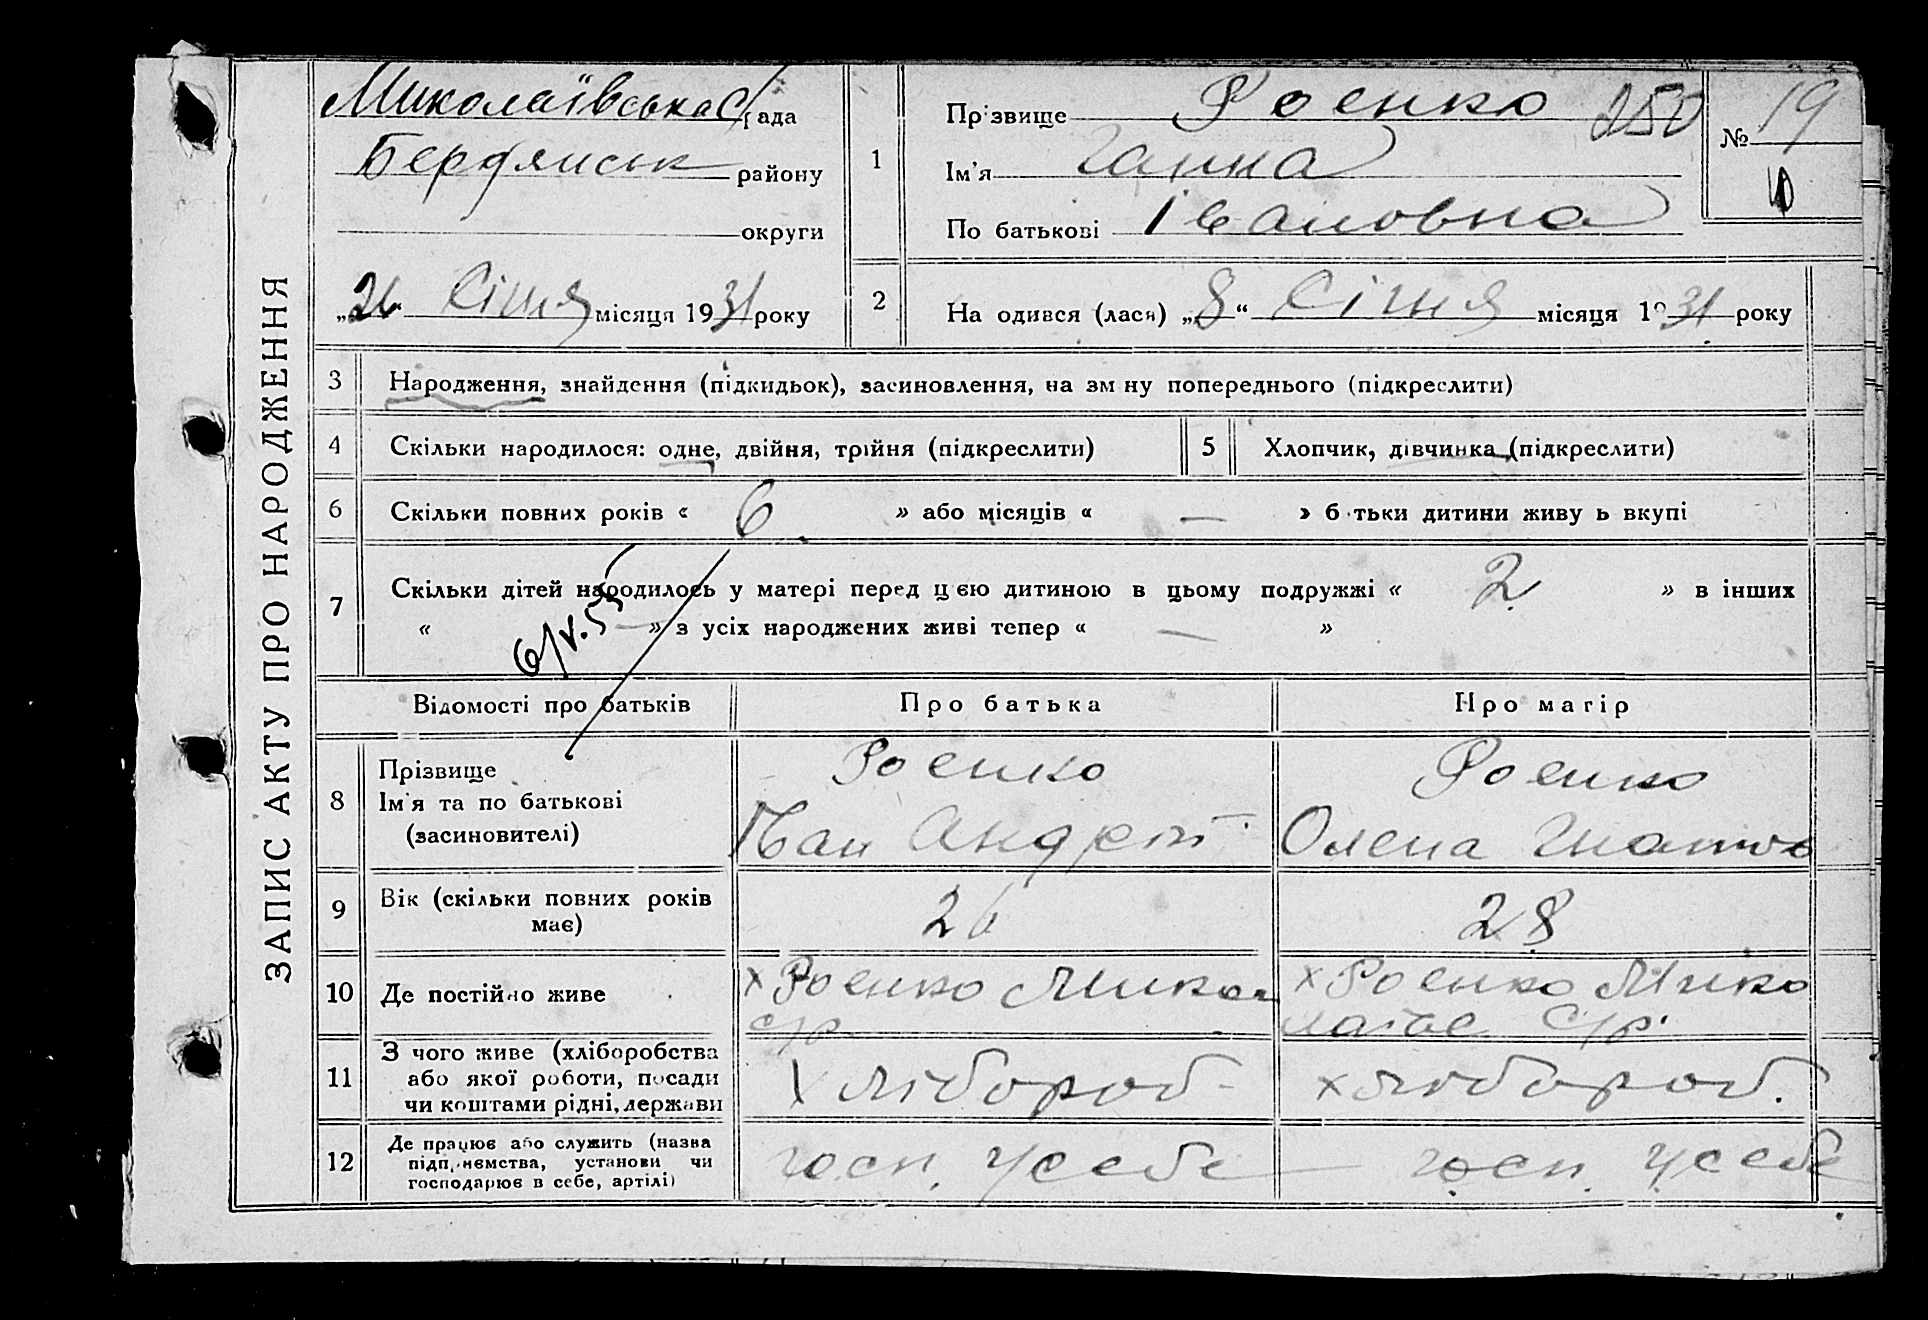 ЗАПИС АКТУ ПРО НАРОДЖЕННЯ
Миколаївська С/рада
Бердянськ району
округи
„26 Січня місяця 1931 року
1
Прізвище Роенко 250
Ім'я Ганна
По батькові Івановна
№ 19
2
На одився (лася) „8“ Січня місяця 1931 року
3 Народження, знайдення (підкидьок), засиновлення, на зм ну попереднього (підкреслити)
4 Скільки народилося: одне, двійня, трійня (підкреслити)
5 Хлопчик, дівчинка (підкреслити)
6 Скільки повних років « 6 » або місяців « — » б тьки дитини живу ь вкупі
7 Скільки дітей народилось у матері перед цією дитиною в цьому подружжі « 2 » в інших
« — » з усіх народжених живі тепер « — »
6/V.55
Відомості про батьків Про батька Про матір
8 Прізвище Роенко Роенко
Ім'я та по батькові
(засиновителі) Іван Андрет Олена Гнатов
9 Вік (скільки повних років
має) 26 28
10 Де постійно живе х Роенко Микол х Роенко Мико
с/р лаівс С/р.
11 З чого живе (хліборобства
або якої роботи, посади
чи коштами рідні, держави Хлібороб хлібороб.
12 Де працює або служить (назва
підп, иємства, установи чи
господарює в себе, артілі) госп. у себе госп. у себе